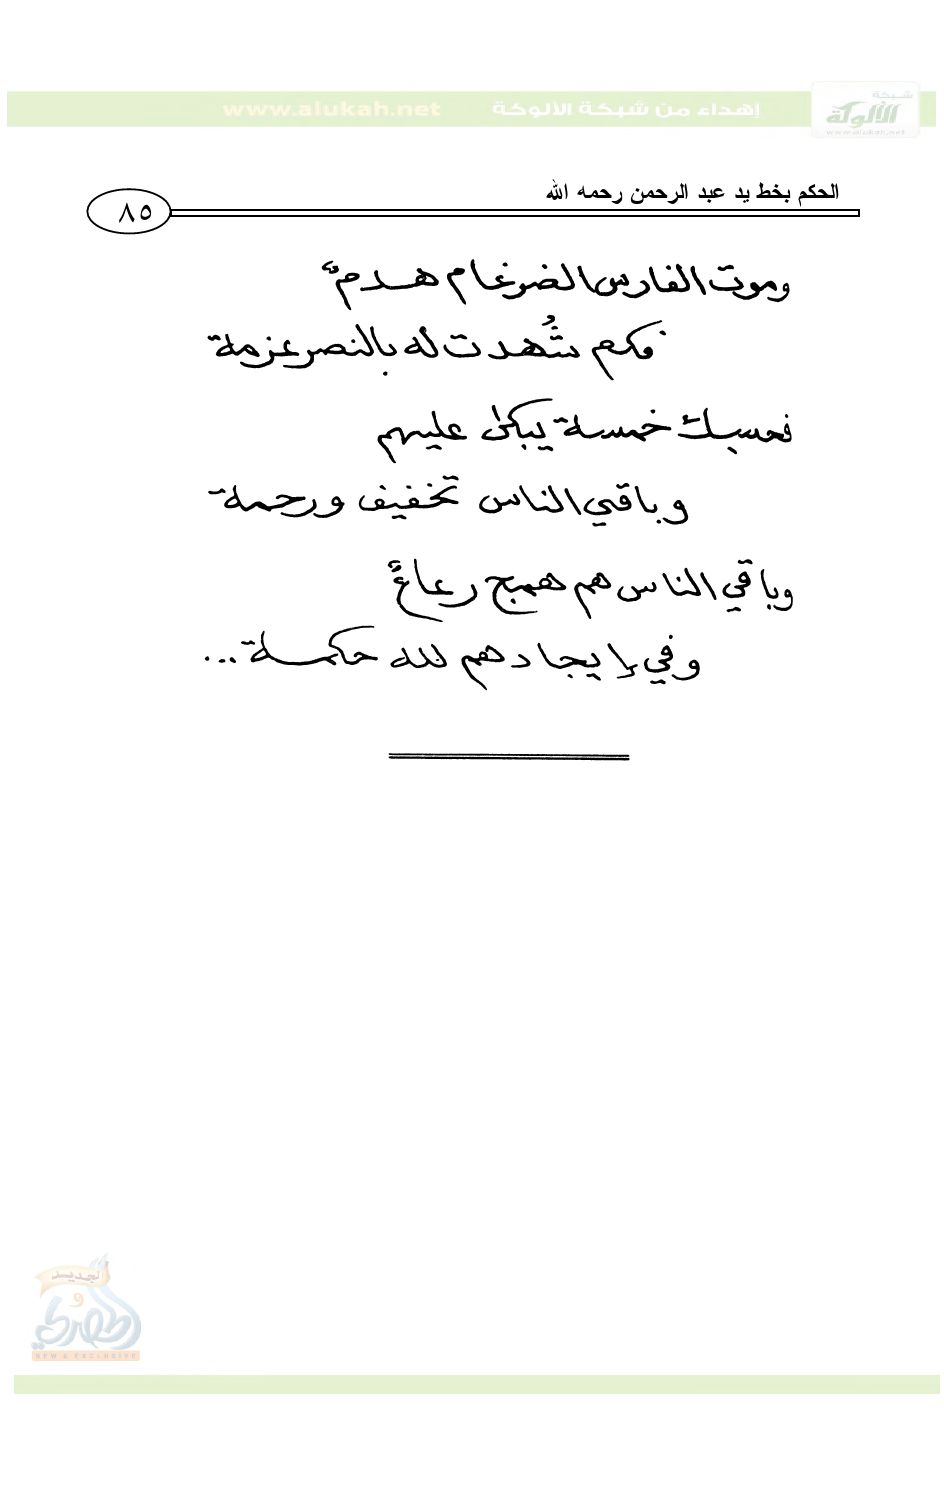 www.alukah.net إهداء من شبكة الألوكة
شبكة
الألوكة
www.alukah.net
الحكم بخط يد عبد الرحمن رحمه الله
٨٥
وموت الفارس الضرغام هدمٌ
فكم شُهدت له بالنصر عزمة
فحسبك خمسة يبكى عليهم
وباقي الناس تخفيف ورحمة
وباقي الناس هم همج رعاعٌ
وفي إيجادهم لله حكمة...
الجديد
و
الحصري
NEW & EXCLUSIVE